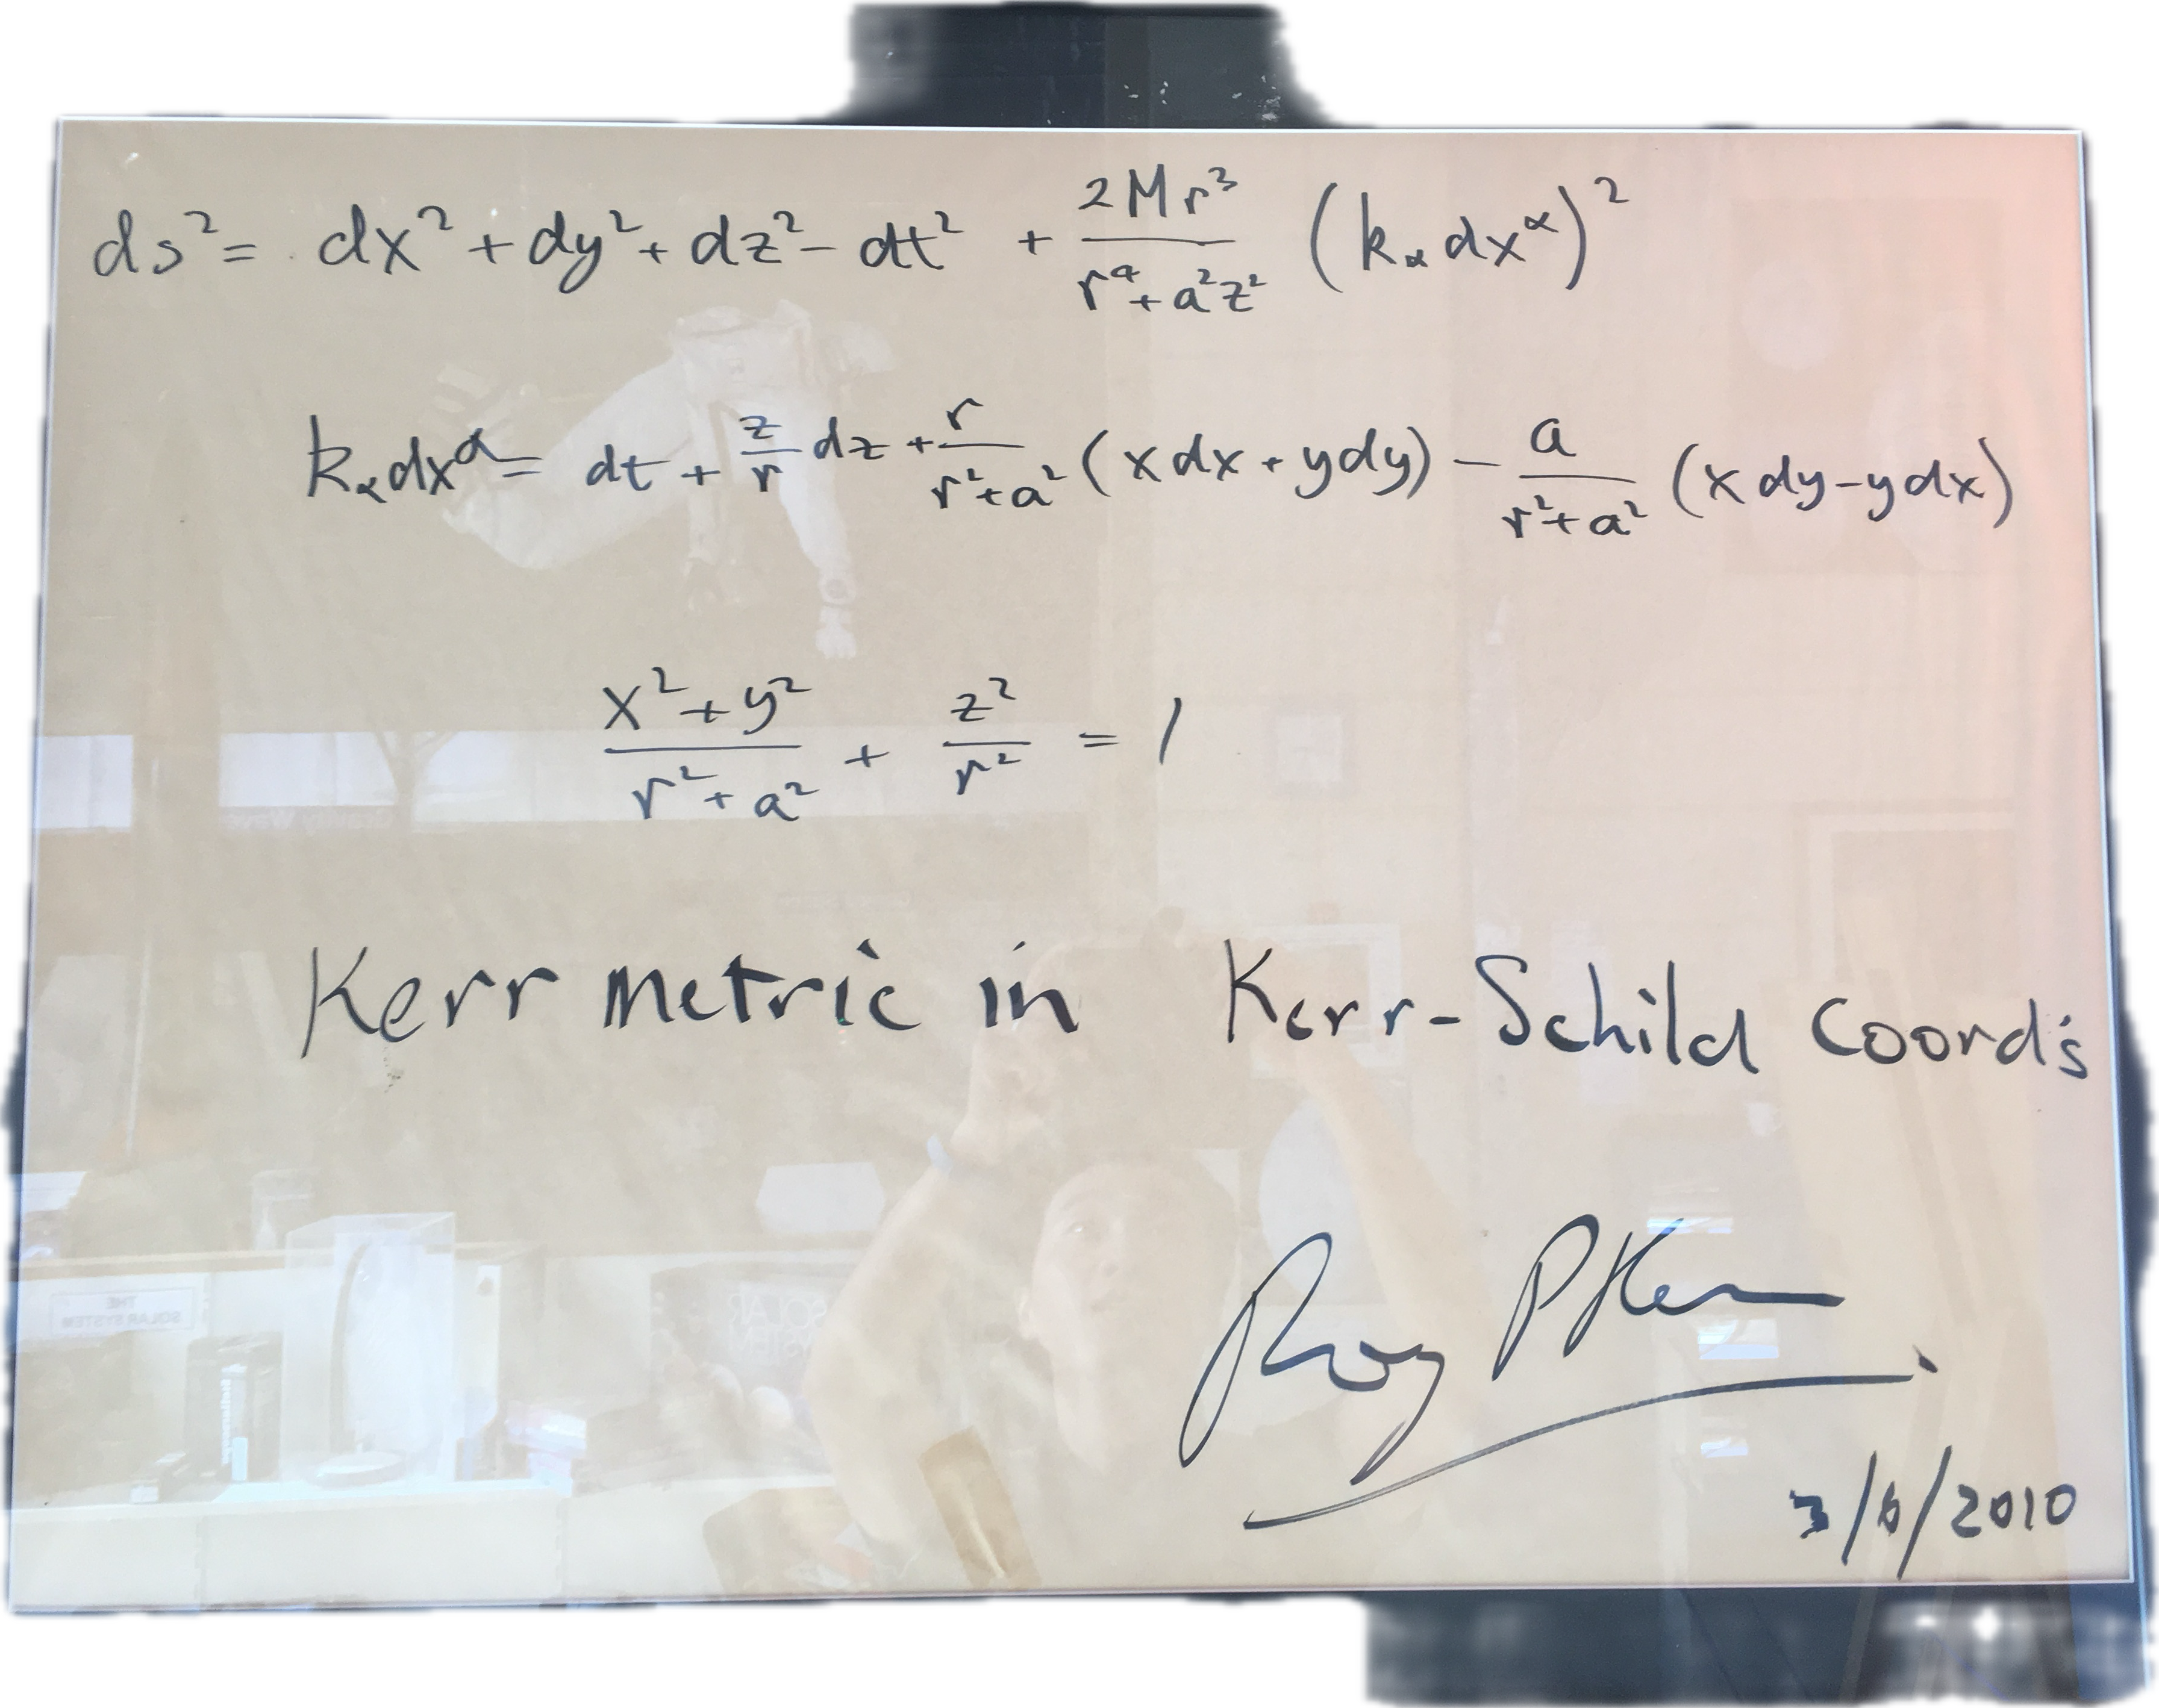 ds² = dx² + dy² + dz² - dt² + 2Mr³/(r⁴ + a²z²) (k_α dx^α)²
k_α dx^α = dt + z/r dz + r/(r² + a²) (x dx + y dy) - a/(r² + a²) (x dy - y dx)
(x² + y²)/(r² + a²) + z²/r² = 1
Kerr metric in Kerr-Schild coord's
THE
SOLAR SYSTEM
SOLAR
SYSTEM
Roy P Kerr
3/6/2010